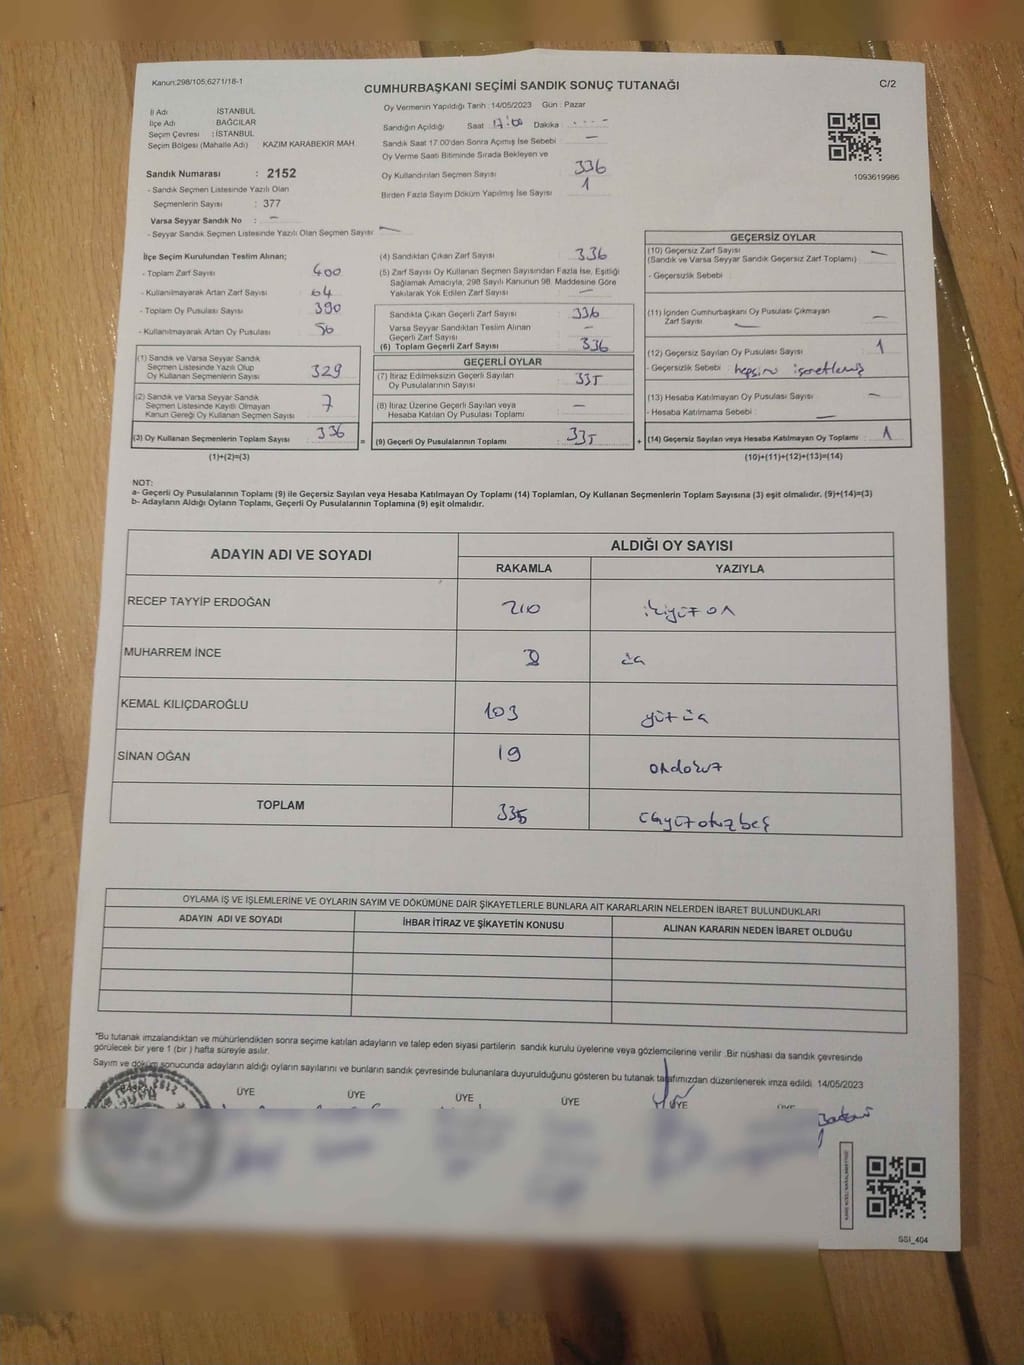 Kanun:298/105,6271/18-1
CUMHURBAŞKANI SEÇİMİ SANDIK SONUÇ TUTANAĞI
C/2
Oy Vermenin Yapıldığı Tarih :14/05/2023 Gün : Pazar
İl Adı İSTANBUL
İlçe Adı BAĞCILAR
Seçim Çevresi : İSTANBUL
Seçim Bölgesi (Mahalle Adı) KAZIM KARABEKİR MAH.
Sandığın Açıldığı Saat 17:00 Dakika
Sandık Saat 17.00'den Sonra Açımış İse Sebebi –
Oy Verme Saati Bitiminde Sırada Bekleyen ve
Oy Kullandırılan Seçmen Sayısı 336
Birden Fazla Sayım Döküm Yapılmış İse Sayısı 1
1093619986
Sandık Numarası : 2152
- Sandık Seçmen Listesinde Yazılı Olan
Seçmenlerin Sayısı : 377
Varsa Seyyar Sandık No : –
- Seyyar Sandık Seçmen Listesinde Yazılı Olan Seçmen Sayısı –
İlçe Seçim Kurulundan Teslim Alınan;
- Toplam Zarf Sayısı 400
- Kullanılmayarak Artan Zarf Sayısı 64
- Toplam Oy Pusulası Sayısı 390
- Kullanılmayarak Artan Oy Pusulası
(1) Sandık ve Varsa Seyyar Sandık
Seçmen Listesinde Yazılı Olup
Oy Kullanan Seçmenlerin Sayısı 329
(2) Sandık ve Varsa Seyyar Sandık
Seçmen Listesinde Kayıtlı Olmayan
Kanun Gereği Oy Kullanan Seçmen Sayısı 7
(3) Oy Kullanan Seçmenlerin Toplam Sayısı 336
=
(1)+(2)=(3)
(4) Sandıktan Çıkan Zarf Sayısı 336
(5) Zarf Sayısı Oy Kullanan Seçmen Sayısından Fazla İse, Eşitliği
Sağlamak Amacıyla, 298 Sayılı Kanunun 98. Maddesine Göre
Yakılarak Yok Edilen Zarf Sayısı –
Sandıkta Çıkan Geçerli Zarf Sayısı 336
Varsa Seyyar Sandıktan Teslim Alınan
Geçerli Zarf Sayısı –
(6) Toplam Geçerli Zarf Sayısı 336
GEÇERLİ OYLAR
(7) İtiraz Edilmeksizin Geçerli Sayılan
Oy Pusulalarının Sayısı 335
(8) İtiraz Üzerine Geçerli Sayılan veya
Hesaba Katılan Oy Pusulası Toplamı –
(9) Geçerli Oy Pusulalarının Toplamı 335
+
GEÇERSİZ OYLAR
(10) Geçersiz Zarf Sayısı
(Sandık ve Varsa Seyyar Sandık Geçersiz Zarf Toplamı) –
- Geçersizlik Sebebi :
(11) İçinden Cumhurbaşkanı Oy Pusulası Çıkmayan
Zarf Sayısı –
(12) Geçersiz Sayılan Oy Pusulası Sayısı 1
- Geçersizlik Sebebi : hepsini işaretlemiş
(13) Hesaba Katılmayan Oy Pusulası Sayısı –
- Hesaba Katılmama Sebebi : –
(14) Geçersiz Sayılan veya Hesaba Katılmayan Oy Toplamı 1
(10)+(11)+(12)+(13)=(14)
NOT:
a- Geçerli Oy Pusulalarının Toplamı (9) ile Geçersiz Sayılan veya Hesaba Katılmayan Oy Toplamı (14) Toplamları, Oy Kullanan Seçmenlerin Toplam Sayısına (3) eşit olmalıdır. (9)+(14)=(3)
b- Adayların Aldığı Oyların Toplamı, Geçerli Oy Pusulalarının Toplamına (9) eşit olmalıdır.
ADAYIN ADI VE SOYADI ALDIĞI OY SAYISI
RAKAMLA YAZIYLA
RECEP TAYYİP ERDOĞAN 210 ikiyüz on
MUHARREM İNCE 3 üç
KEMAL KILIÇDAROĞLU 103 yüz üç
SİNAN OĞAN 19 ondokuz
TOPLAM 335 üçyüzotuzbeş
OYLAMA İŞ VE İŞLEMLERİNE VE OYLARIN SAYIM VE DÖKÜMÜNE DAİR ŞİKAYETLERLE BUNLARA AİT KARARLARIN NELERDEN İBARET BULUNDUKLARI
ADAYIN ADI VE SOYADI İHBAR İTİRAZ VE ŞİKAYETİN KONUSU ALINAN KARARIN NEDEN İBARET OLDUĞU
*Bu tutanak imzalandıktan ve mühürlendikten sonra seçime katılan adayların ve talep eden siyasi partilerin sandık kurulu üyelerine veya gözlemcilerine verilir .Bir nüshası da sandık çevresinde
görülecek bir yere 1 (bir ) hafta süreyle asılır.
Sayım ve döküm sonucunda adayların aldığı oyların sayılarını ve bunların sandık çevresinde bulunanlara duyurulduğunu gösteren bu tutanak tarafımızdan düzenlenerek imza edildi. 14/05/2023
BAŞKAN ÜYE ÜYE ÜYE ÜYE ÜYE ÜYE
SSI_404